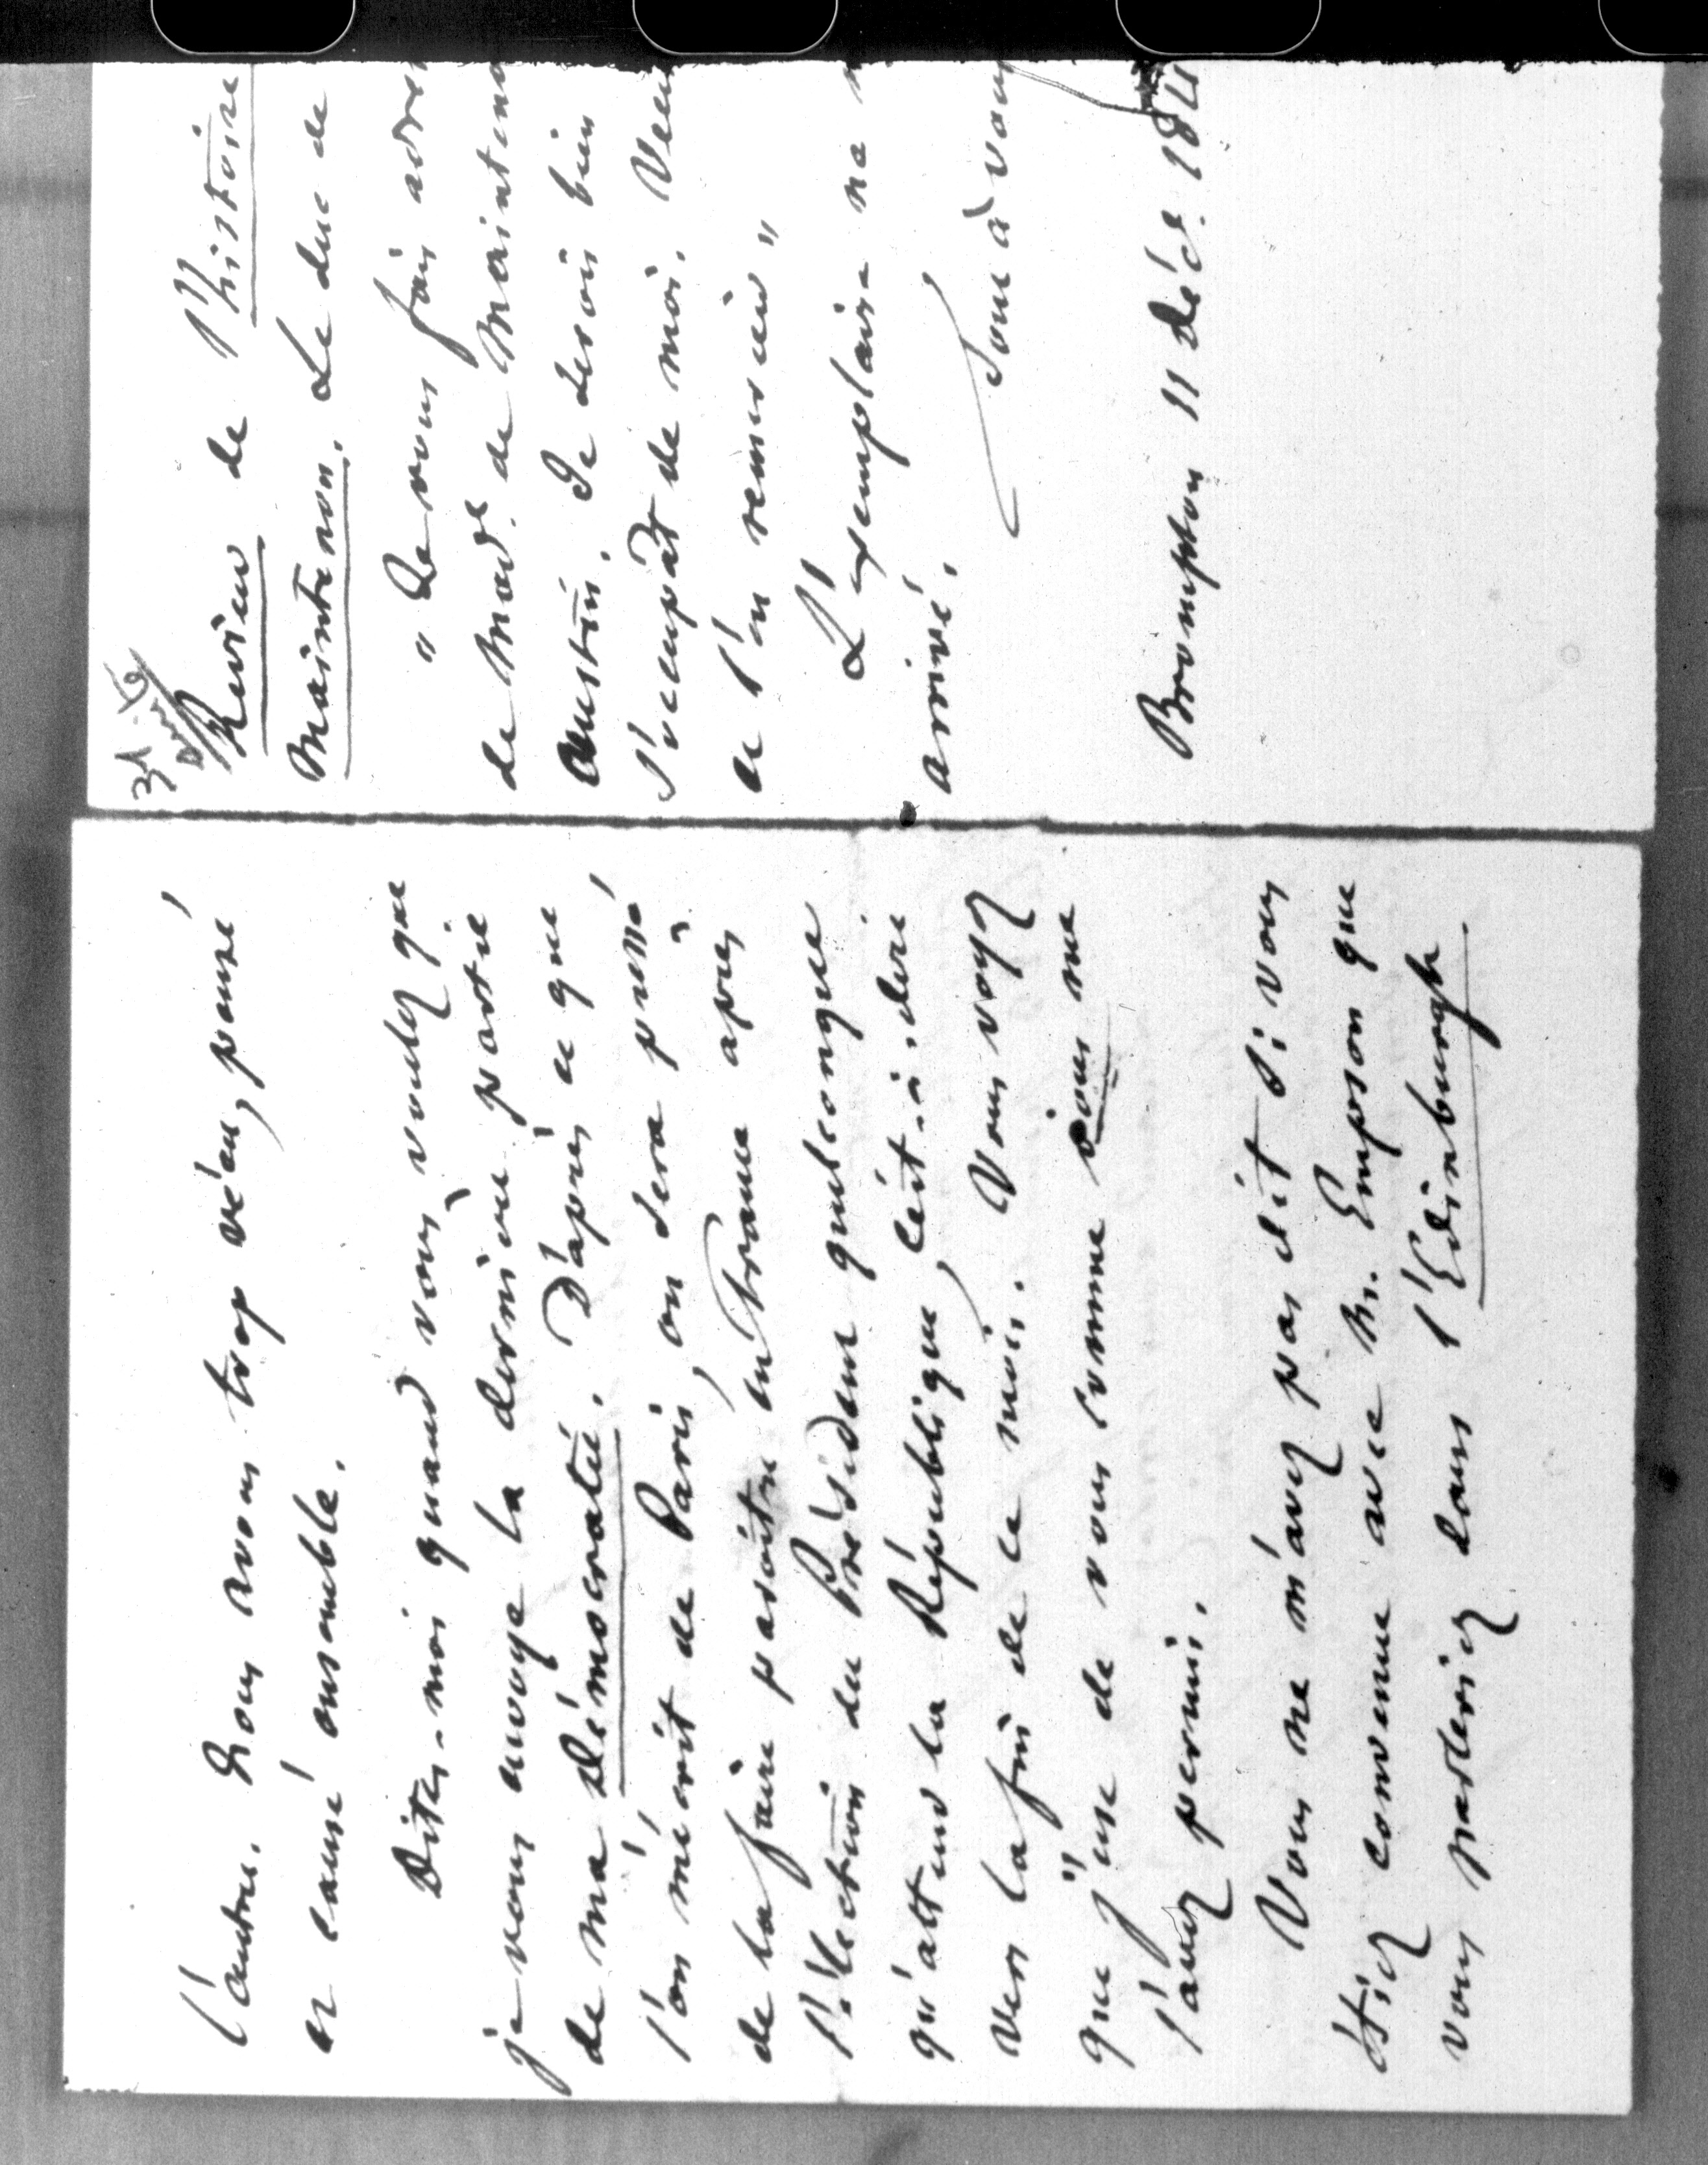 l'autre. Nous avons trop vécu, pensé
et causé ensemble.
Dites-moi quand vous voulez que
je vous envoye la dernière partie
de ma Démocratie. D'après ce que
l'on m'écrit de Paris, on sera pressé
de la faire paroître en France après
l'élection du Président quelconque
qu'attend la République, c'est-à-dire
vers la fin de ce mois. Vous voyez
que j'use de vous comme vous me
l'avez permis.
Vous ne m'avez pas dit si vous
étiez convenu avec Mr. Empson que
vous parleriez dans l'Edinburgh
Review de l'histoire
Maintenon. Le duc de
" Je vous fais adre
de Made de Maintenon
Austin. Je desire bien
s'occupât de moi. Veu
et l'en remercier "
L'exemplaire ne
arrivé.
Tout à vous
Brompton 11 déce. 184